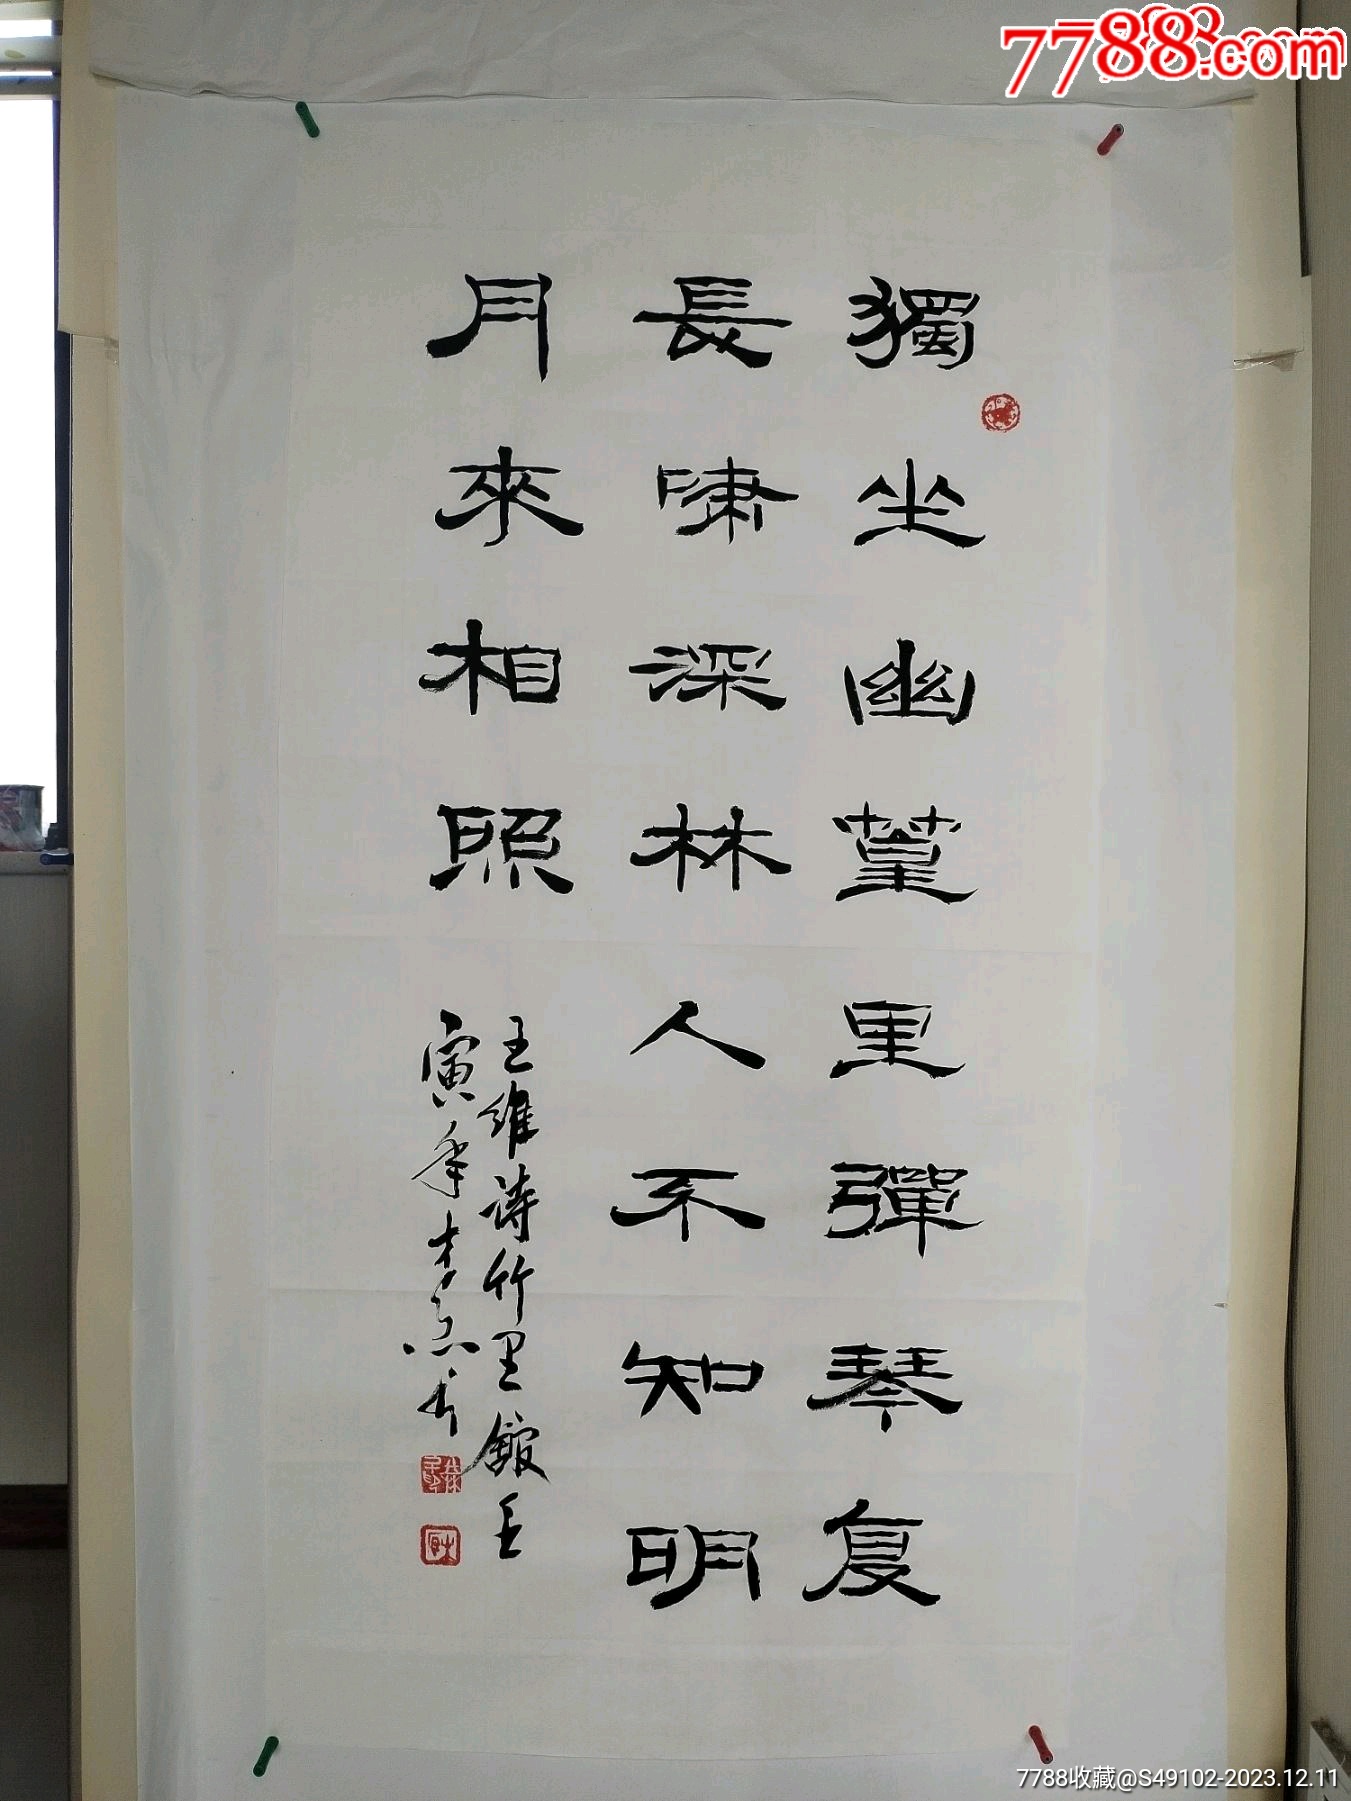 7788.com
獨坐幽篁里彈琴复
長嘯深林人不知明
月來相照
王維诗竹里館壬
寅年李
7788收藏@S49102-2023.12.11